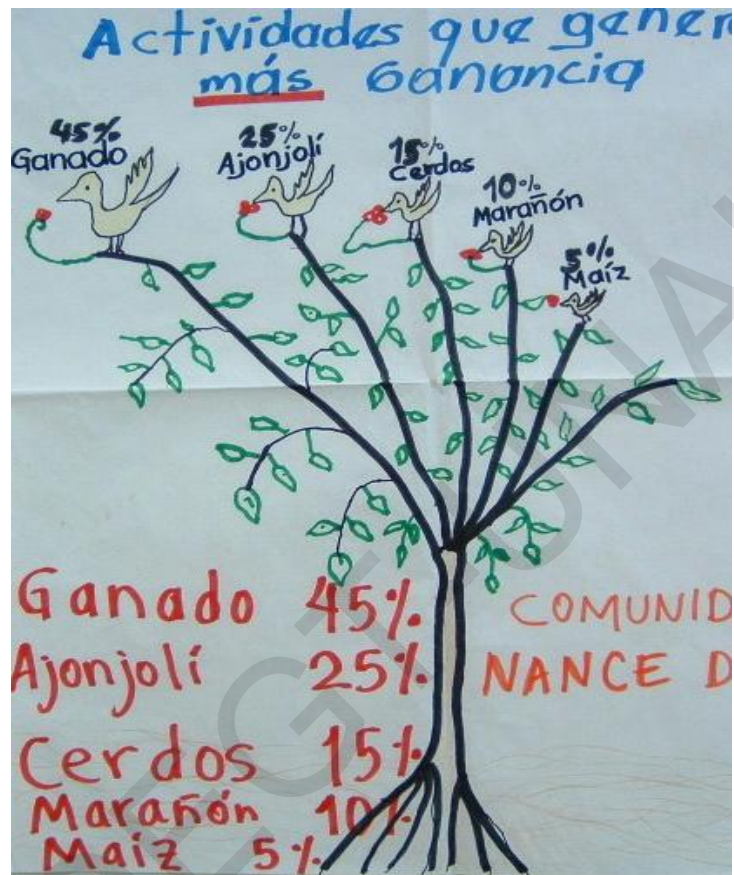 Actividades que gener
más Ganancia
45%
Ganado
25%
Ajonjolí
15%
Cerdos
10%
Marañón
5%
Maíz
Ganado 45%
Ajonjolí 25%
Cerdos 15%
Marañón 10%
Maiz 5%
COMUNID
NANCE D